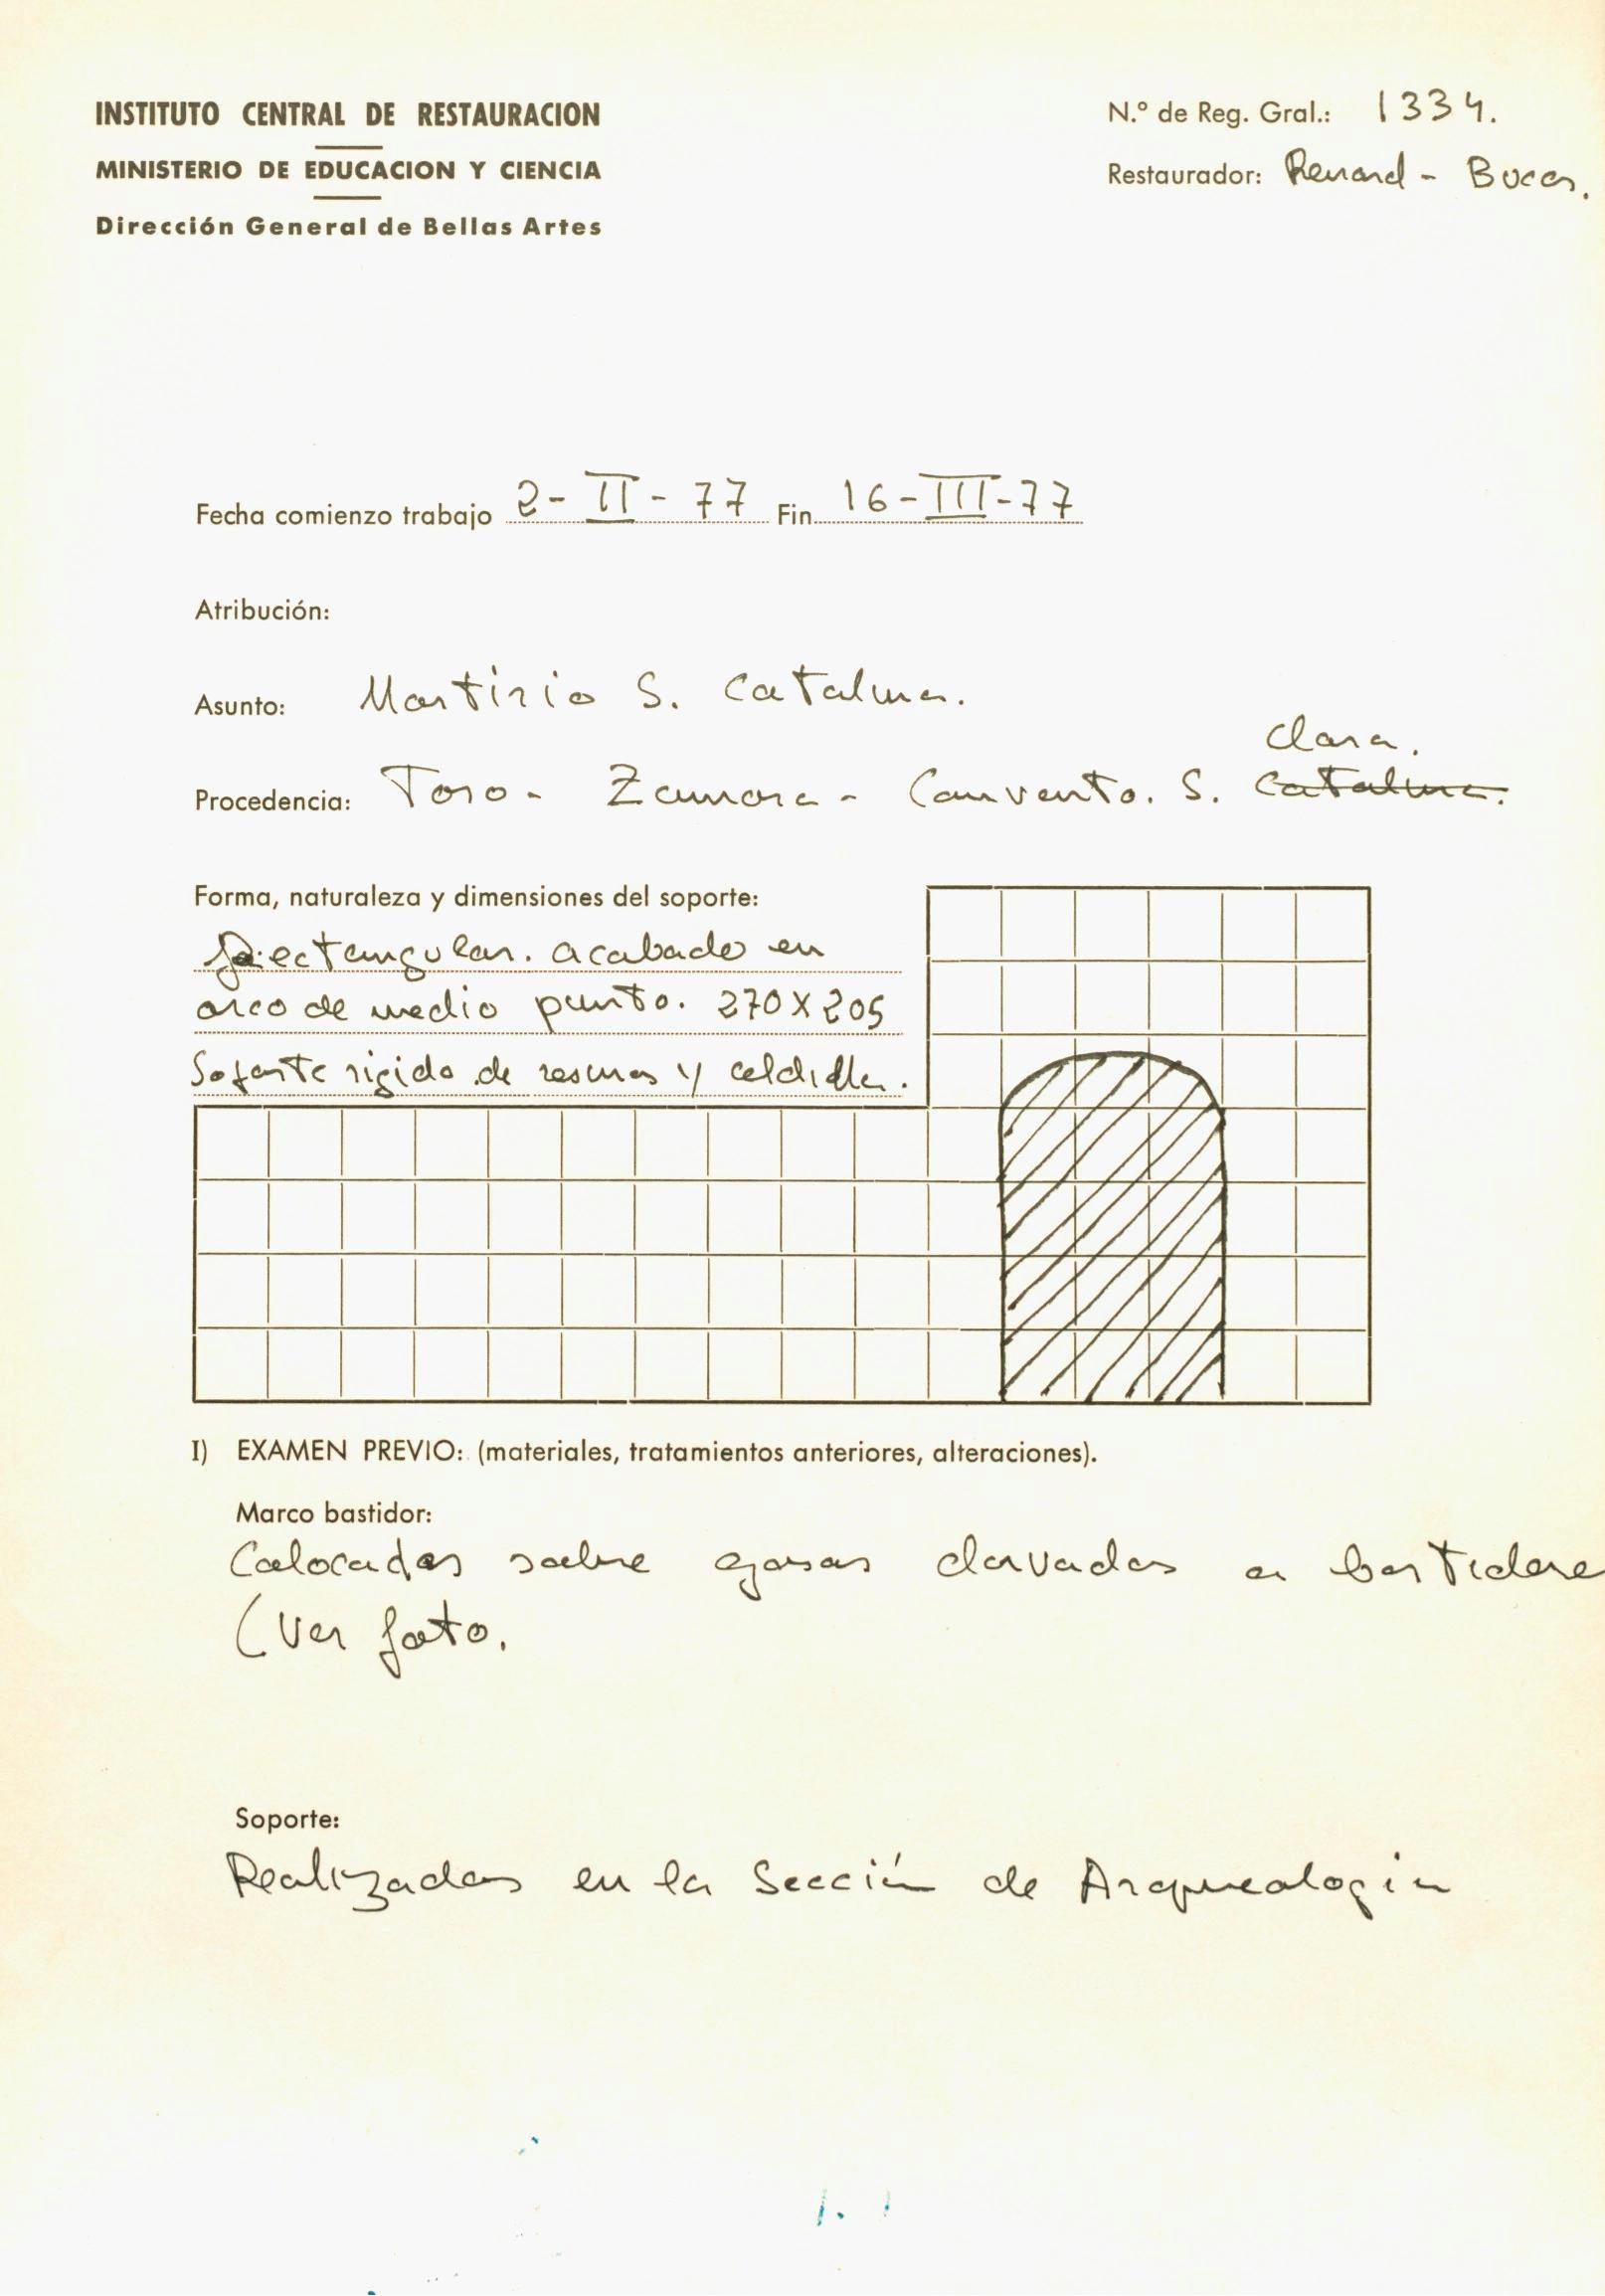 INSTITUTO CENTRAL DE RESTAURACION
MINISTERIO DE EDUCACION Y CIENCIA
Dirección General de Bellas Artes
N.º de Reg. Gral.: 1334.
Restaurador: Renard -
Fecha comienzo trabajo 2-II-77 Fin 16-III-77
Atribución:
Asunto: Martirio S. Catalina.
Clara.
Procedencia: Toro - Zamora - Convento. S. Catalina.
Forma, naturaleza y dimensiones del soporte:
Rectangular. acabado en
arco de medio punto. 270 X 205
Soporte rigido de resinas y celdilla.
I) EXAMEN PREVIO: (materiales, tratamientos anteriores, alteraciones).
Marco bastidor:
Colocados sobre gasas clavadas a bastidore
(Ver foto.
Soporte:
Realizados en la Sección de Arqueologia